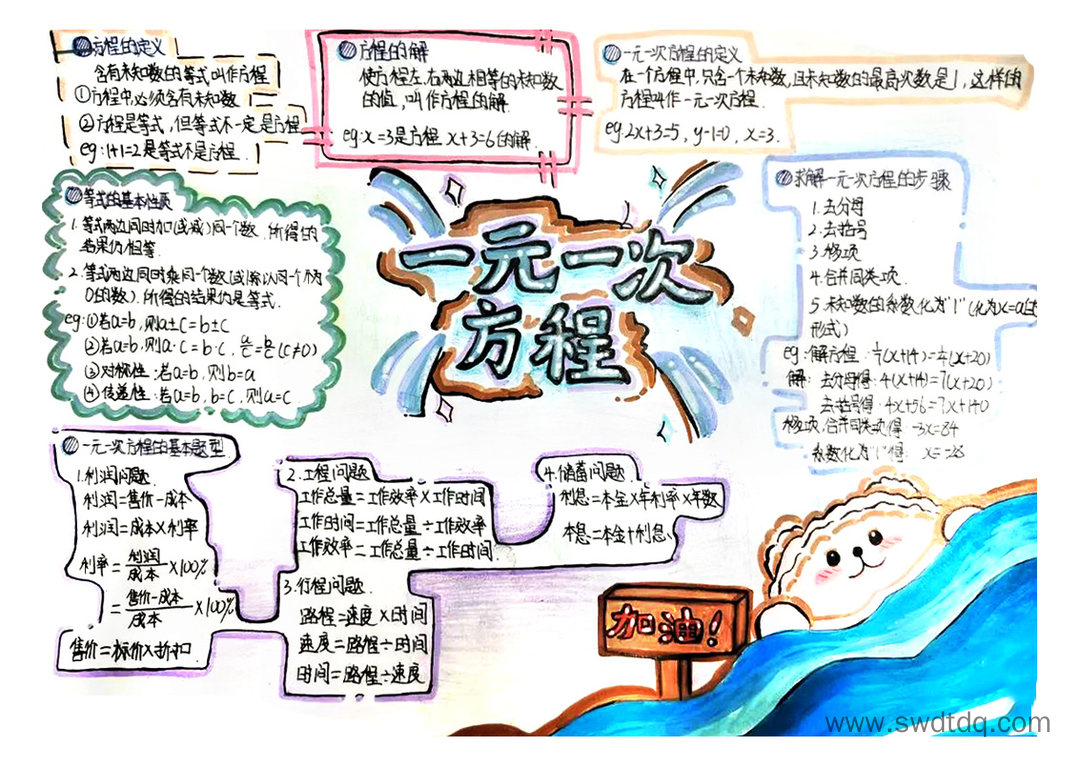 方程的定义
含有未知数的等式叫作方程
①方程中必须含有未知数
②方程是等式,但等式不一定是方程
eg:1+1=2是等式不是方程.
方程的解
使方程左、右两边相等的未知数
的值,叫作方程的解.
eg:x=3是方程 x+3=6的解.
一元一次方程的定义
在一个方程中,只含一个未知数,且未知数的最高次数是1,这样的
方程叫作一元一次方程.
eg.2x+3=5, y-1=0, x=3.
等式的基本性质
1.等式两边同时加(或减)同一个数,所得的
结果仍相等.
2.等式两边同时乘同一个数(或除以同一个不为
0的数),所得的结果仍是等式.
eg:①若a=b,则a±c=b±c
②若a=b,则a·c=b·c, a/c=b/c(c≠0)
③对称性:若a=b,则b=a
④传递性:若a=b,b=c,则a=c.
一元一次
方程
求解一元一次方程的步骤
1.去分母
2.去括号
3.移项
4.合并同类项.
5.未知数的系数化为"1"(化为x=a的
形式)
eg:解方程:1/7(x+14)=1/4(x+20)
解:去分母得:4(x+14)=7(x+20)
去括号得:4x+56=7x+140
移项,合并同类项得 -3x=84
系数化为"1"得: x=-28
一元一次方程的基本题型
1.利润问题.
利润=售价-成本
利润=成本×利率
利率=利润/成本×100%
=售价-成本/成本×100%
售价=标价×折扣.
2.工程问题.
工作总量=工作效率×工作时间
工作时间=工作总量÷工作效率
工作效率=工作总量÷工作时间.
3.行程问题.
路程=速度×时间
速度=路程÷时间
时间=路程÷速度
4.储蓄问题.
利息=本金×年利率×年数
本息=本金+利息
加油!
www.swdtdq.com